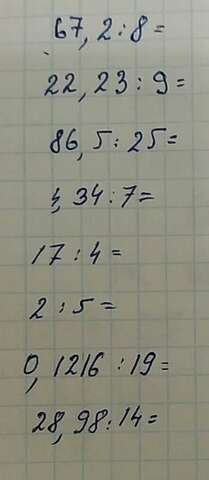 67,2:8=
22,23:9=
86,5:25=
4,34:7=
17:4=
2:5=
0,1216:19=
28,98:14=